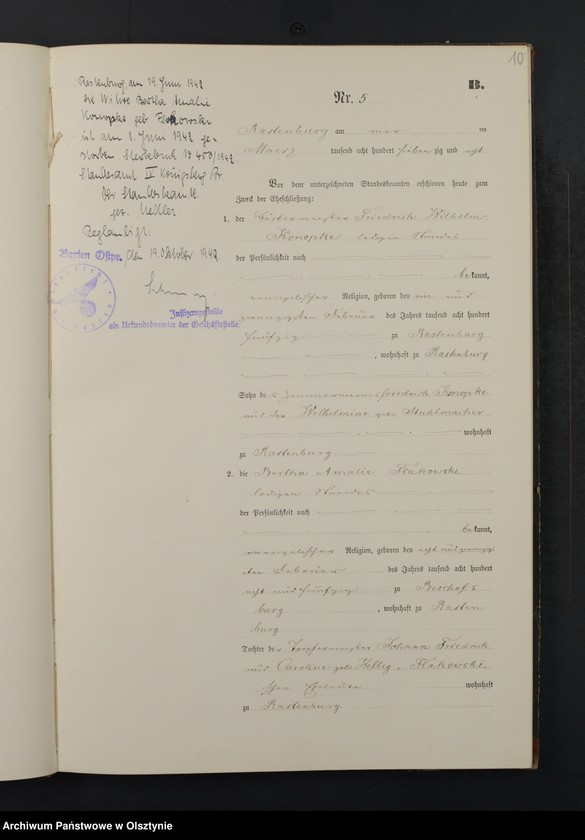 10
B.
Rastenburg, am 19. Juni 1942
Die Witwe Bertha Amalie
Konopke geb Flakowski
ist am 1. Juni 1942 ge-
storben Sterbebuch Nr 453/1942
Standesamt IV Königsberg Pr.
Der Standesbeamte
gez.
Beglaubigt.
Barten Ostpr., den 19. Oktober 1942
Justizangestellte
als Urkundsbeamter der Geschäftsstelle.
Nr. 5
Rastenburg am vier ten
Maerz tausend acht hundert sieben zig und acht
Vor dem unterzeichneten Standesbeamten erschienen heute zum
Zweck der Eheschließung:
1. der Friedrich Wilhelm
Konopke ledigen Standes
der Persönlichkeit nach
bekannt,
evangelischer Religion, geboren den ein und
zwanzigsten Februar des Jahres tausend acht hundert
fünfzig zu Rastenburg
, wohnhaft zu Rastenburg
Sohn des Friedrich Konopke
und der Wilhelmine geb Stuhlmacher
wohnhaft
zu Rastenburg
2. die Bertha Amalie Flakowski
ledigen Standes
der Persönlichkeit nach
bekannt,
evangelischer Religion, geboren den acht und zwanzig
sten Februar des Jahres tausend acht hundert
acht und fünfzig zu
burg , wohnhaft zu Rasten
burg
Tochter des Johann Friedrich
und Caroline geb. Helbig, Flakowski
schen Eheleute wohnhaft
zu Rastenburg
Archiwum Państwowe w Olsztynie